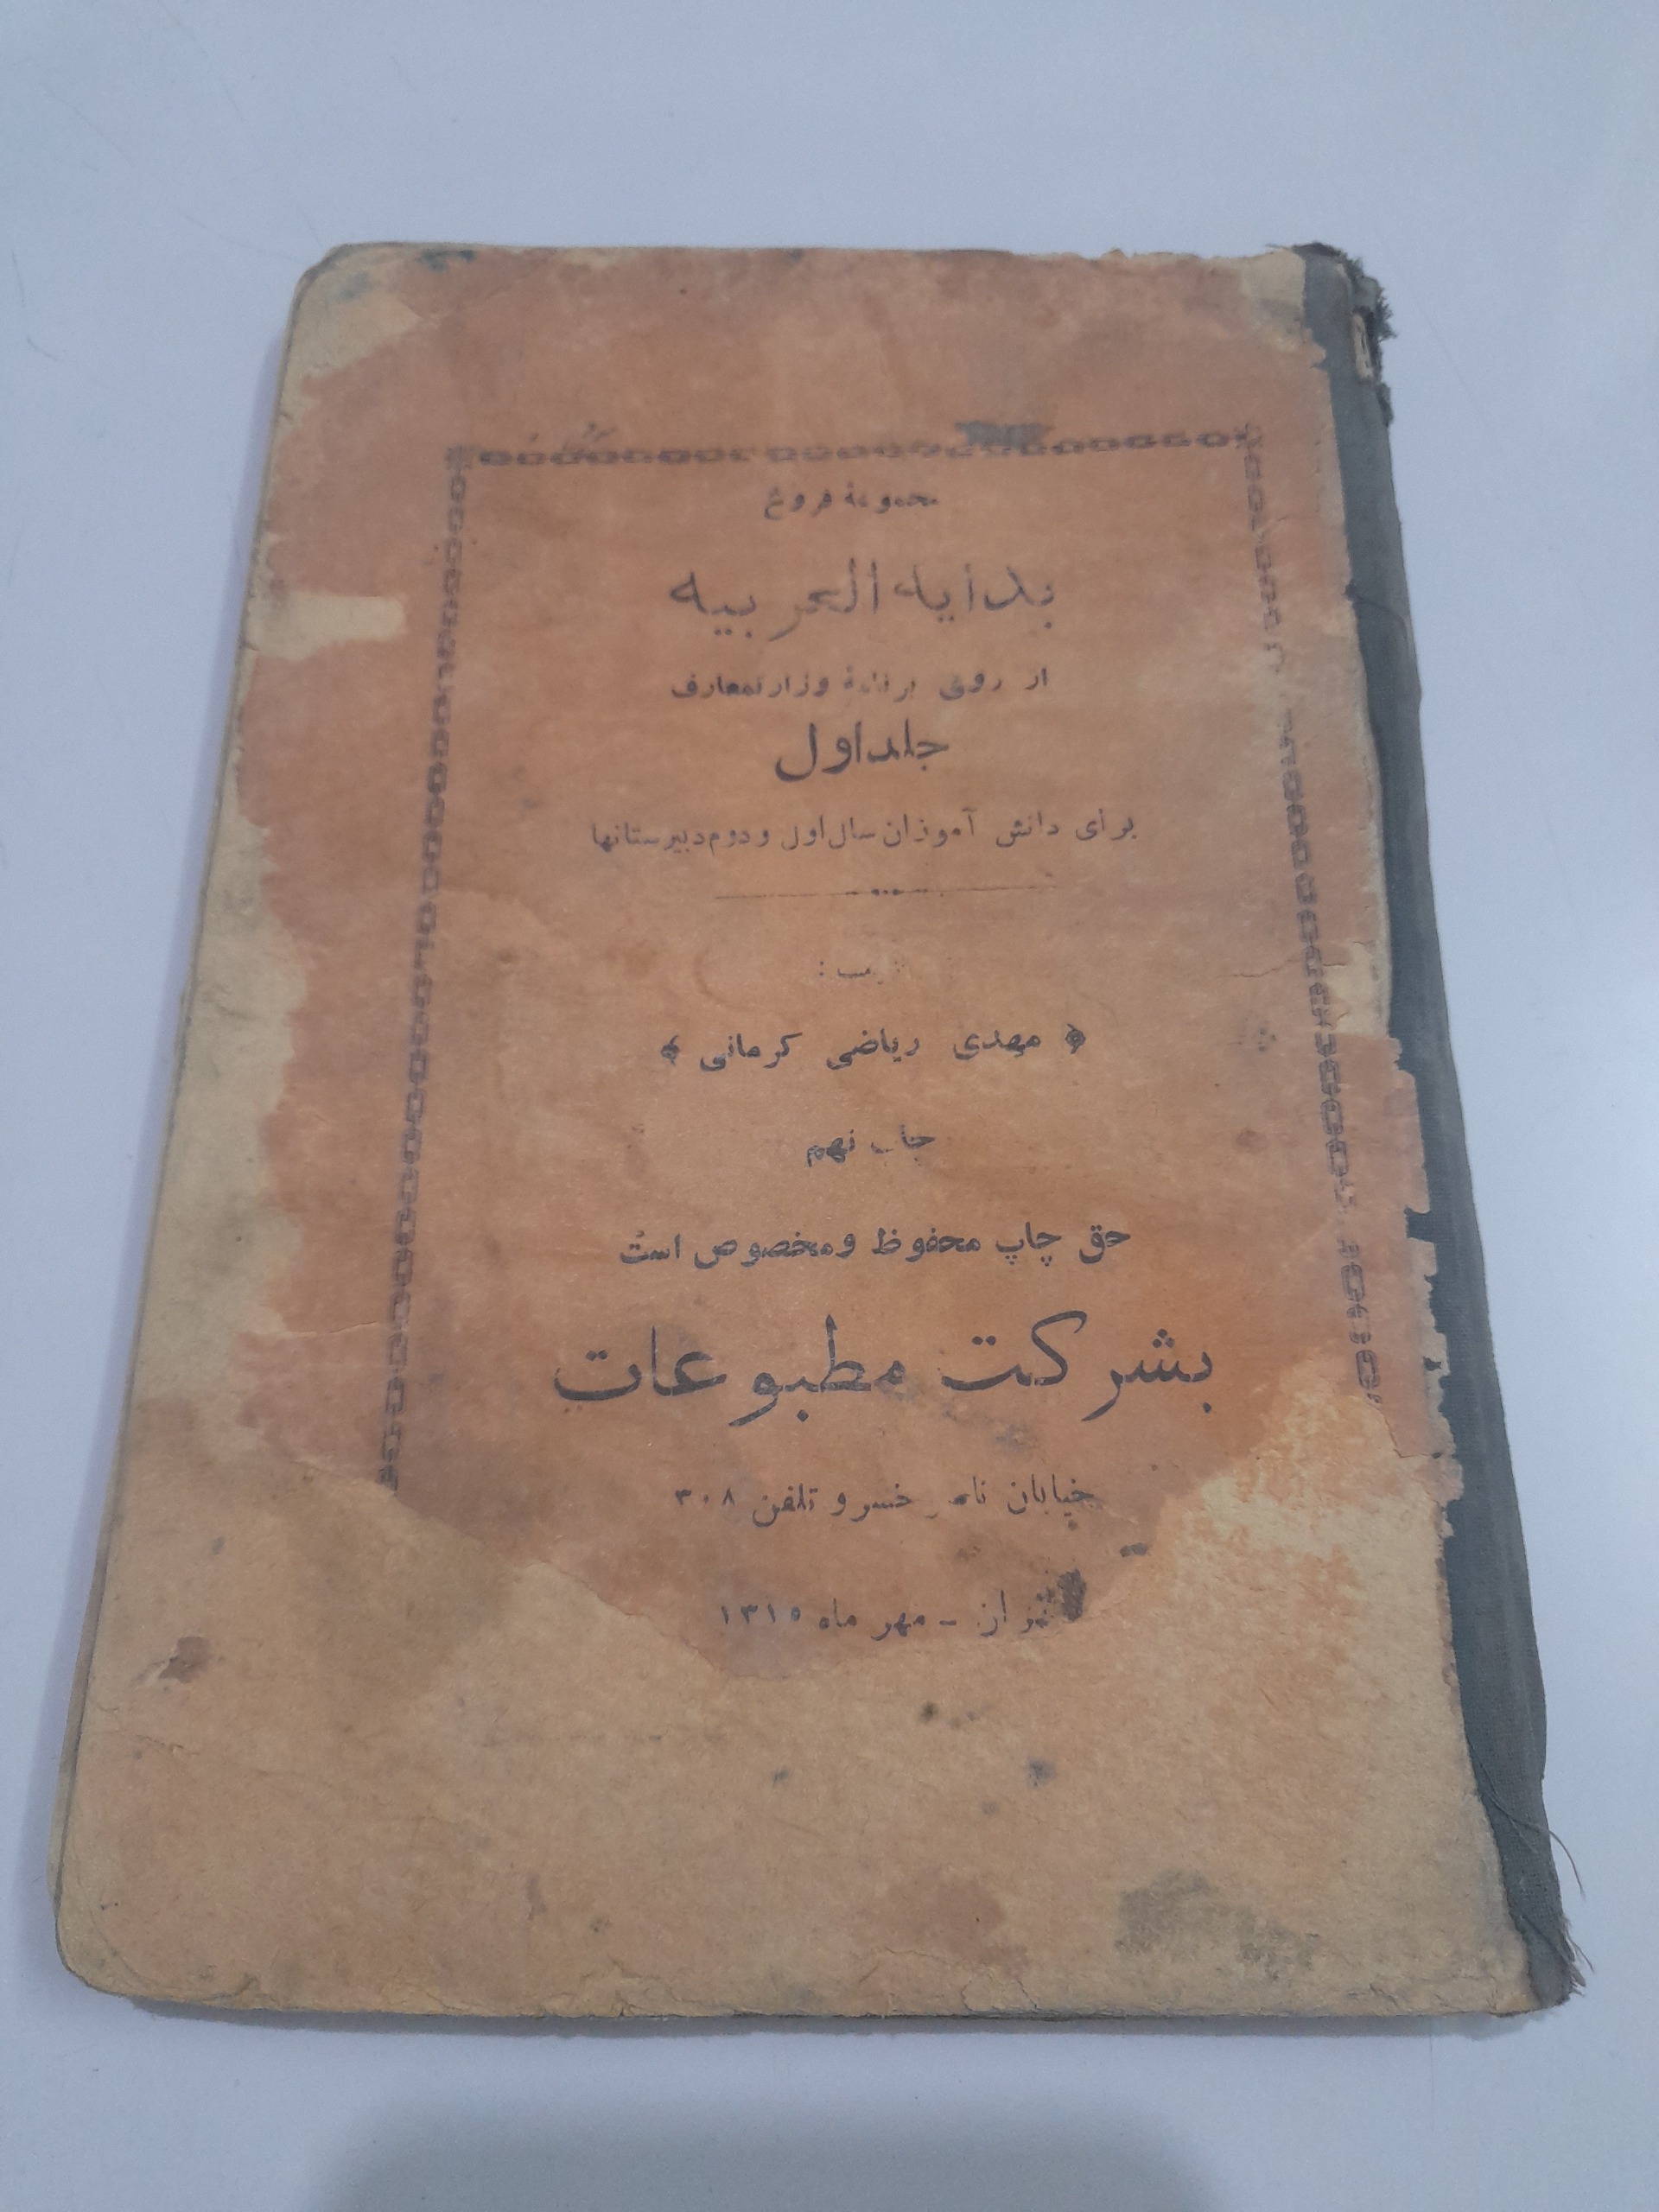 مجموعهٔ فروغ
بدایه العربیه
از روی برنامهٔ وزارتمعارف
جلد اول
برای دانش آموزان سال اول و دوم دبیرستانها
﴿ مهدی ریاضی کرمانی ﴾
چاپ نهم
حق چاپ محفوظ و مخصوص است
بشرکت مطبوعات
خیابان ناصر خسرو تلفن ۳۰۸
تهران - مهر ماه ۱۳۱۵